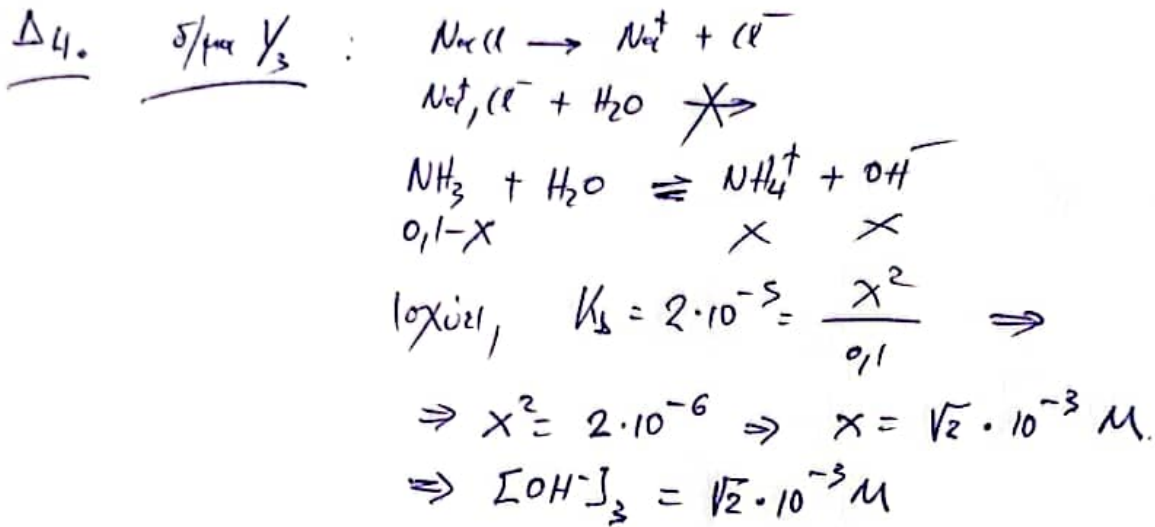 Δ4. δ/μα Υ₃ : NaCl → Na⁺ + Cl⁻
Na⁺, Cl⁻ + H₂O ↛
NH₃ + H₂O ⇌ NH₄⁺ + OH⁻
0,1-x x x
Ισχύει, K_b = 2·10⁻⁵ = x² / 0,1 ⇒
⇒ x² = 2·10⁻⁶ ⇒ x = √2 · 10⁻³ M.
⇒ [OH⁻]₃ = √2 · 10⁻³ M